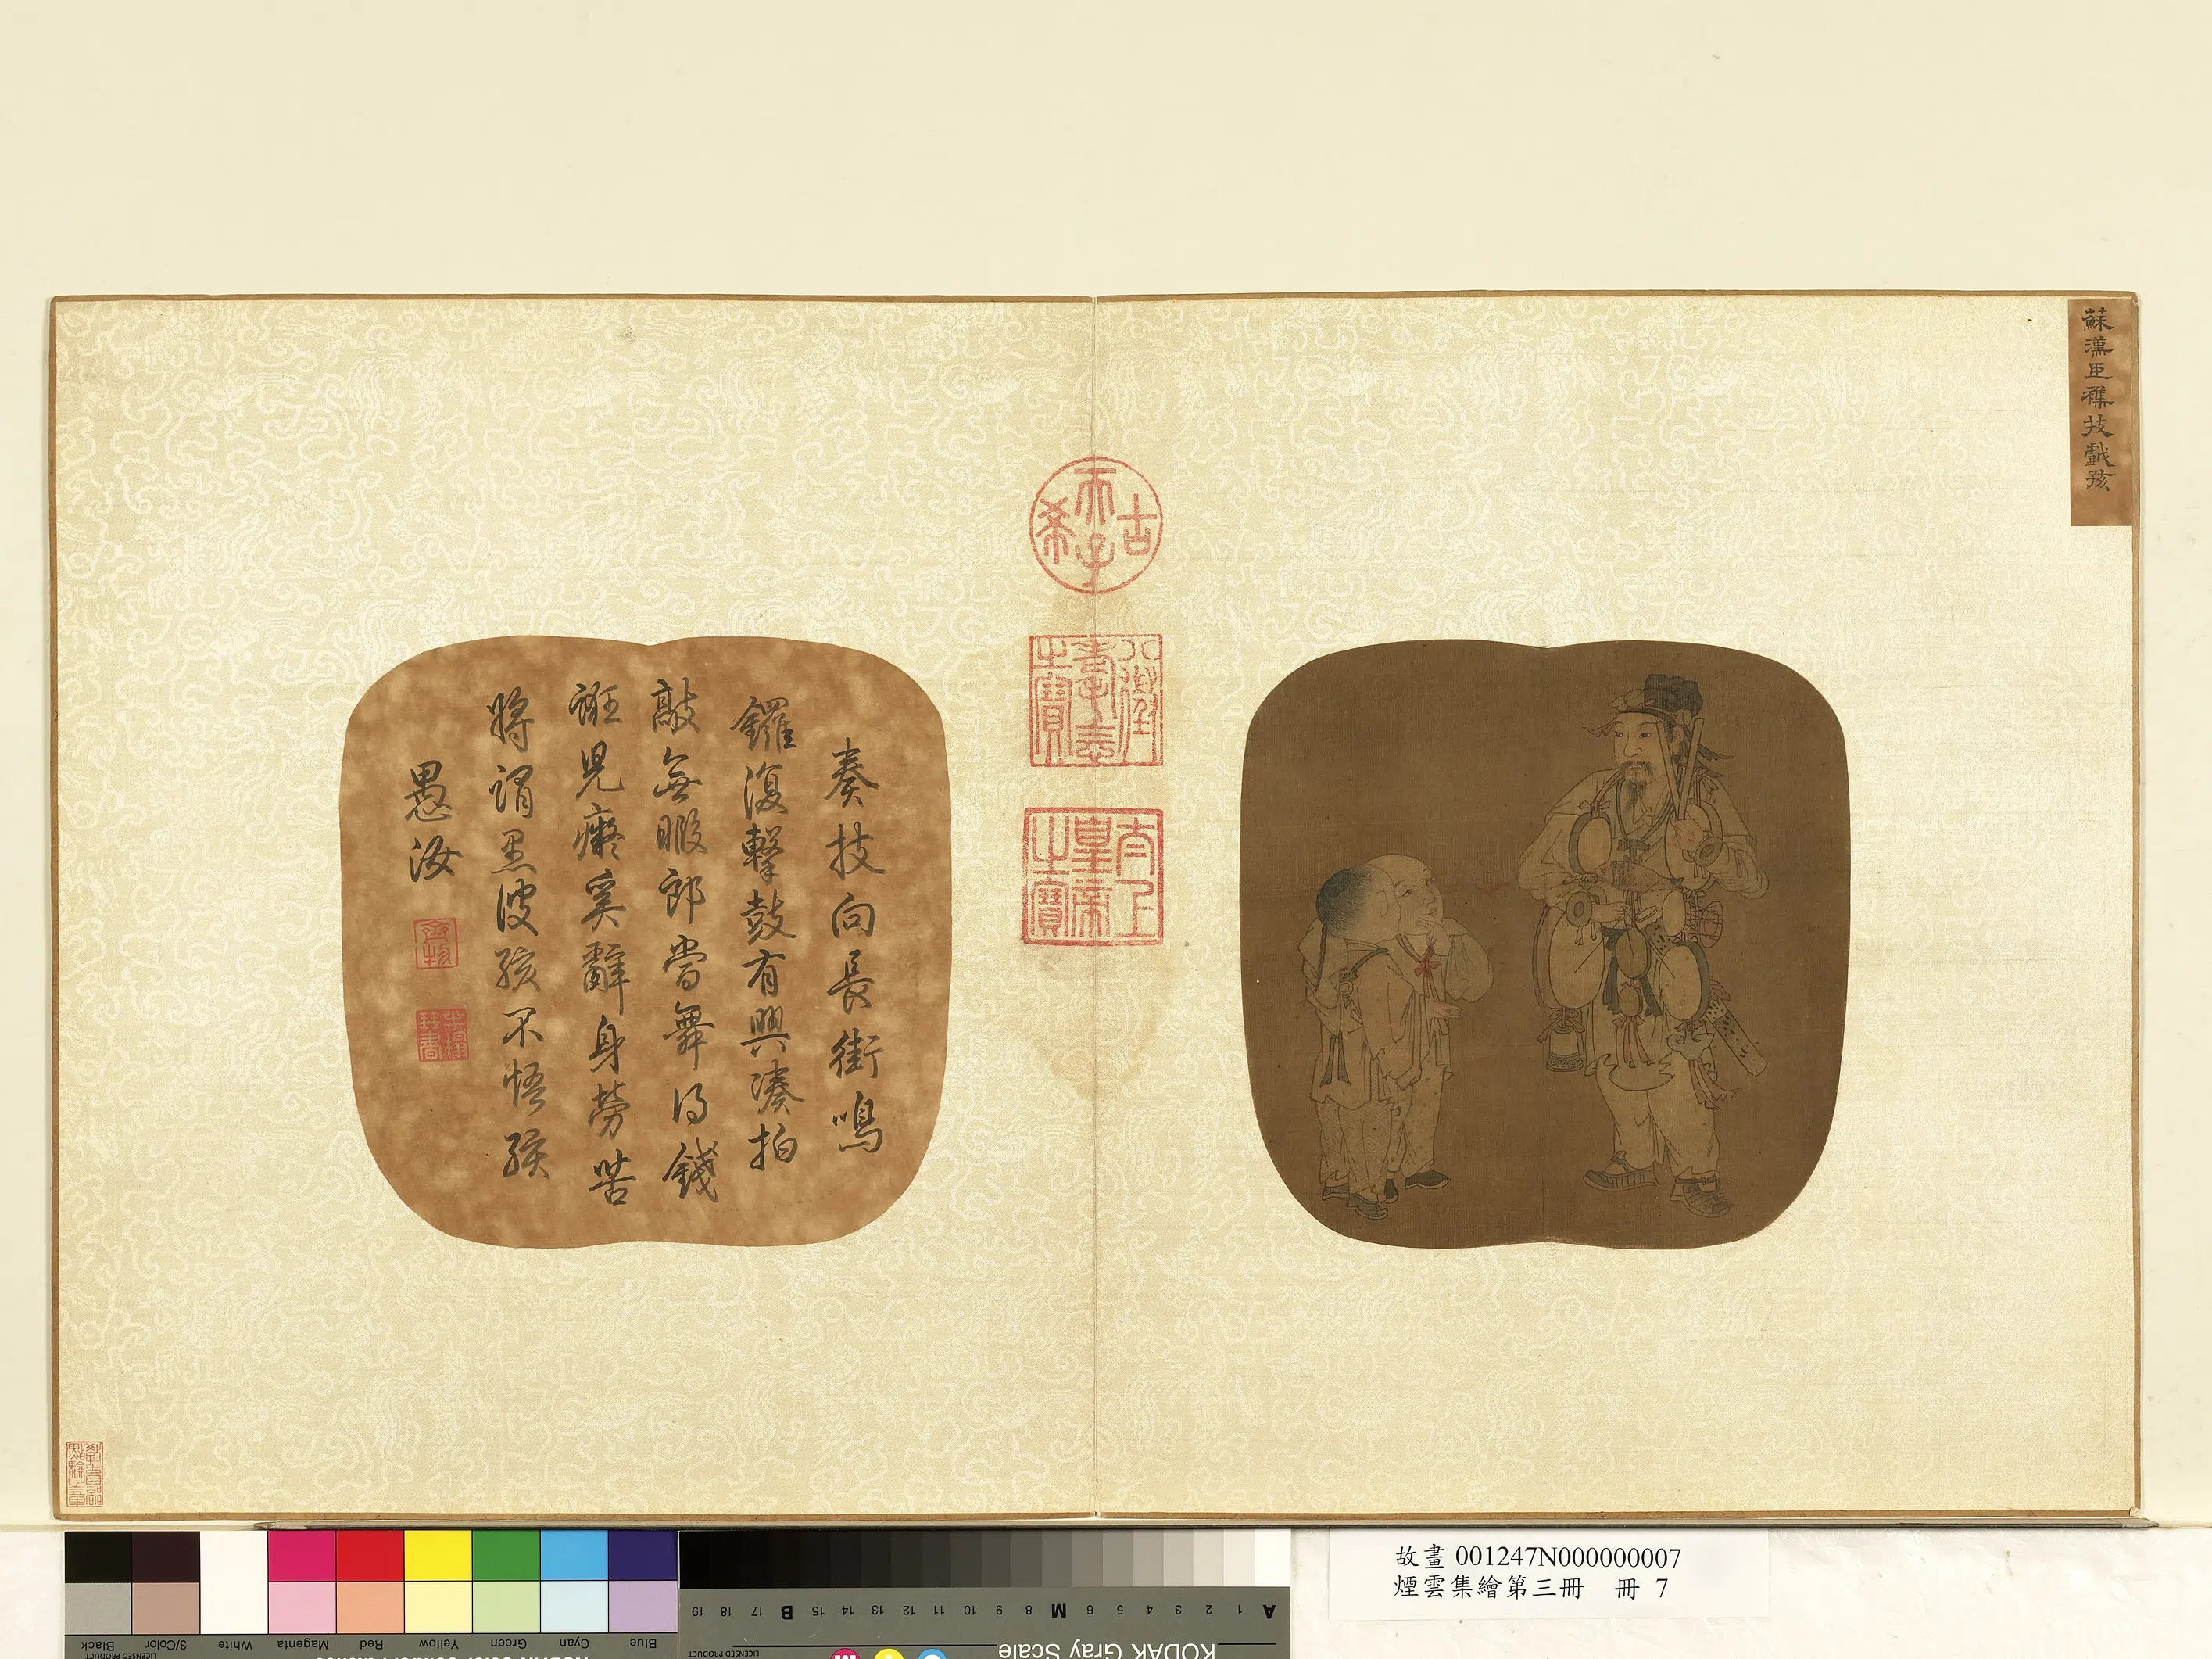 蘇漢臣雜技戲孩
古希天子
八徵耄念之寶
太上皇帝之寶
奏技向長街鳴
鑼復擊鼓有興湊拍
敲無暇郎當舞得錢
誑兒癡奚辭身勞苦
將謂愚彼孩不悟孩
愚汝
齊物
半榻琴書
教育部點驗之章
故畫 001247N000000007
煙雲集繪第三冊 冊 7
Blue Cyan Green Yellow Red Magenta White 3/Color Black
LICENSED PRODUCT
A 1 2 3 4 5 6 M 8 9 10 11 12 13 14 15 B 17 18 19
KODAK Gray Scale
LICENSED PRODUCT